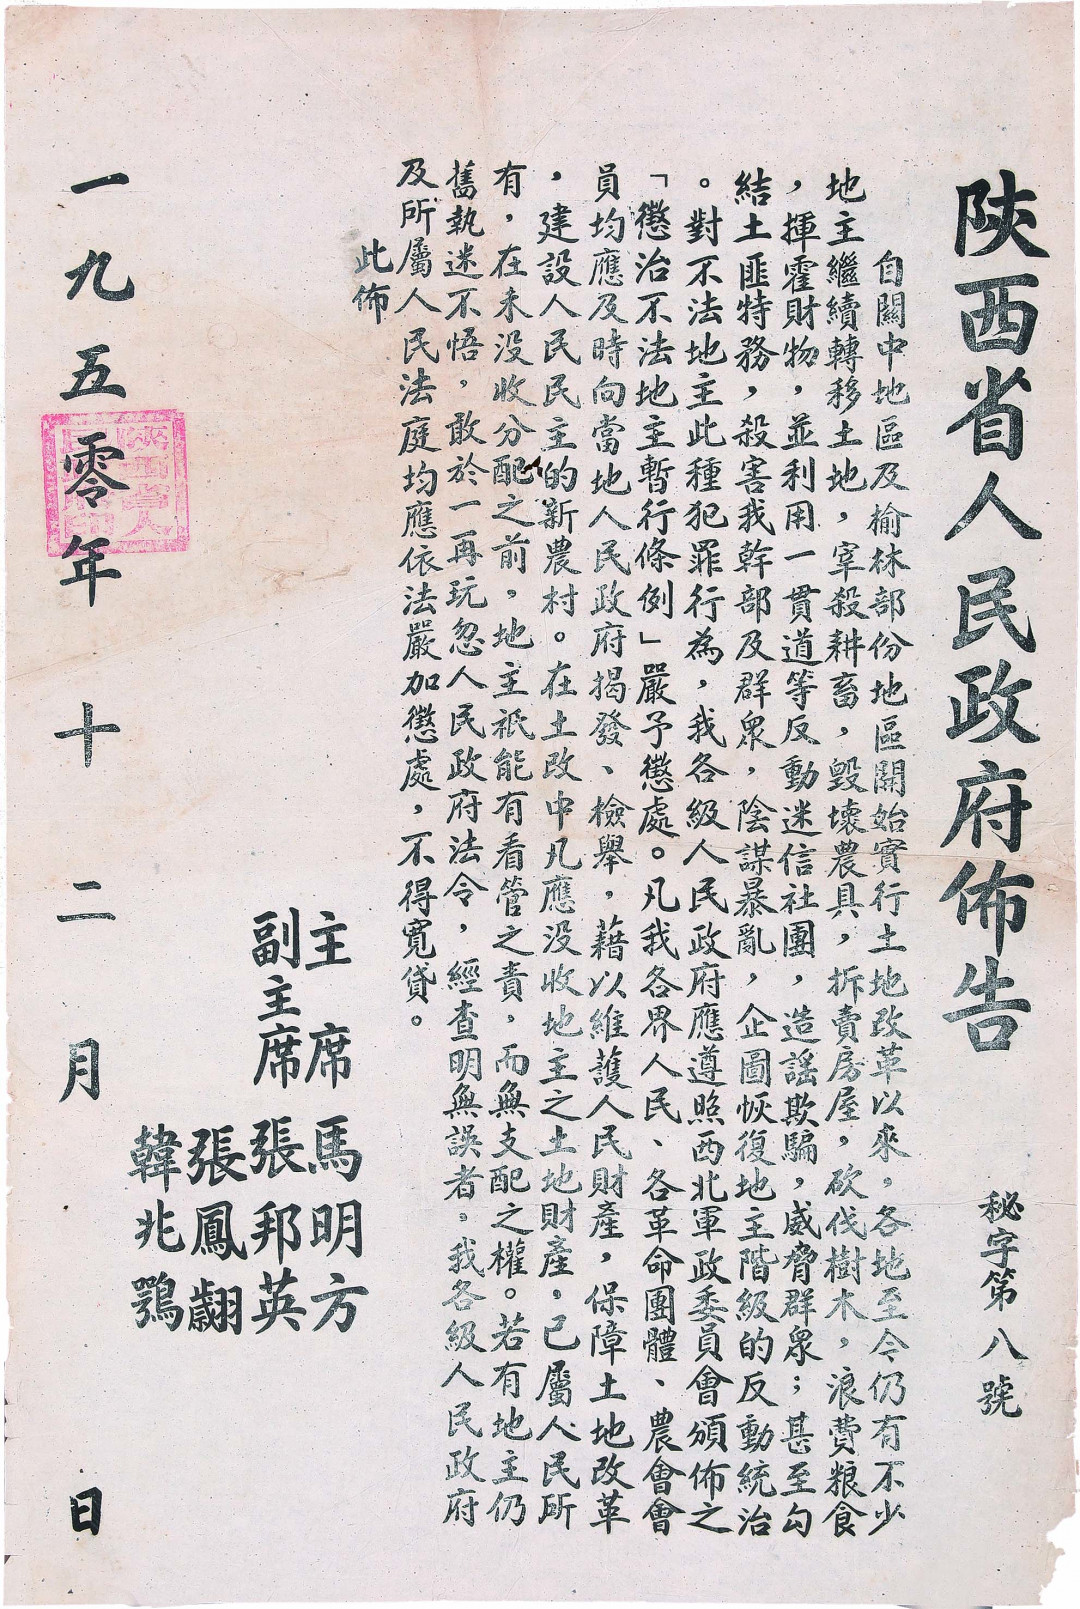 陝西省人民政府佈告
秘字第八號
自關中地區及榆林部份地區開始實行土地改革以來，各地至今仍有不少
地主繼續轉移土地，宰殺耕畜，毀壞農具，拆賣房屋，砍伐樹木，浪費粮食
，揮霍財物，並利用一貫道等反動迷信社團，造謠欺騙，威脅群衆；甚至勾
結土匪特務，殺害我幹部及群衆，陰謀暴亂，企圖恢復地主階級的反動統治
。對不法地主此種犯罪行為，我各級人民政府應遵照西北軍政委員會頒佈之
「懲治不法地主暫行條例」嚴予懲處。凡我各界人民、各革命團體、農會會
員均應及時向當地人民政府揭發、檢舉，藉以維護人民財產，保障土地改革
，建設人民民主的新農村。在土改中凡應没收地主之土地財產，已屬人民所
有，在未没收分配之前，地主祇能有看管之責，而無支配之權。若有地主仍
舊執迷不悟，敢於一再玩忽人民政府法令，經查明無誤者，我各級人民政府
及所屬人民法庭均應依法嚴加懲處，不得寬貸。
此佈
主席 馬明方
副主席 張邦英
張鳳翽
韓兆鶚
一九五零年十二月 日
陝西省人民政府印